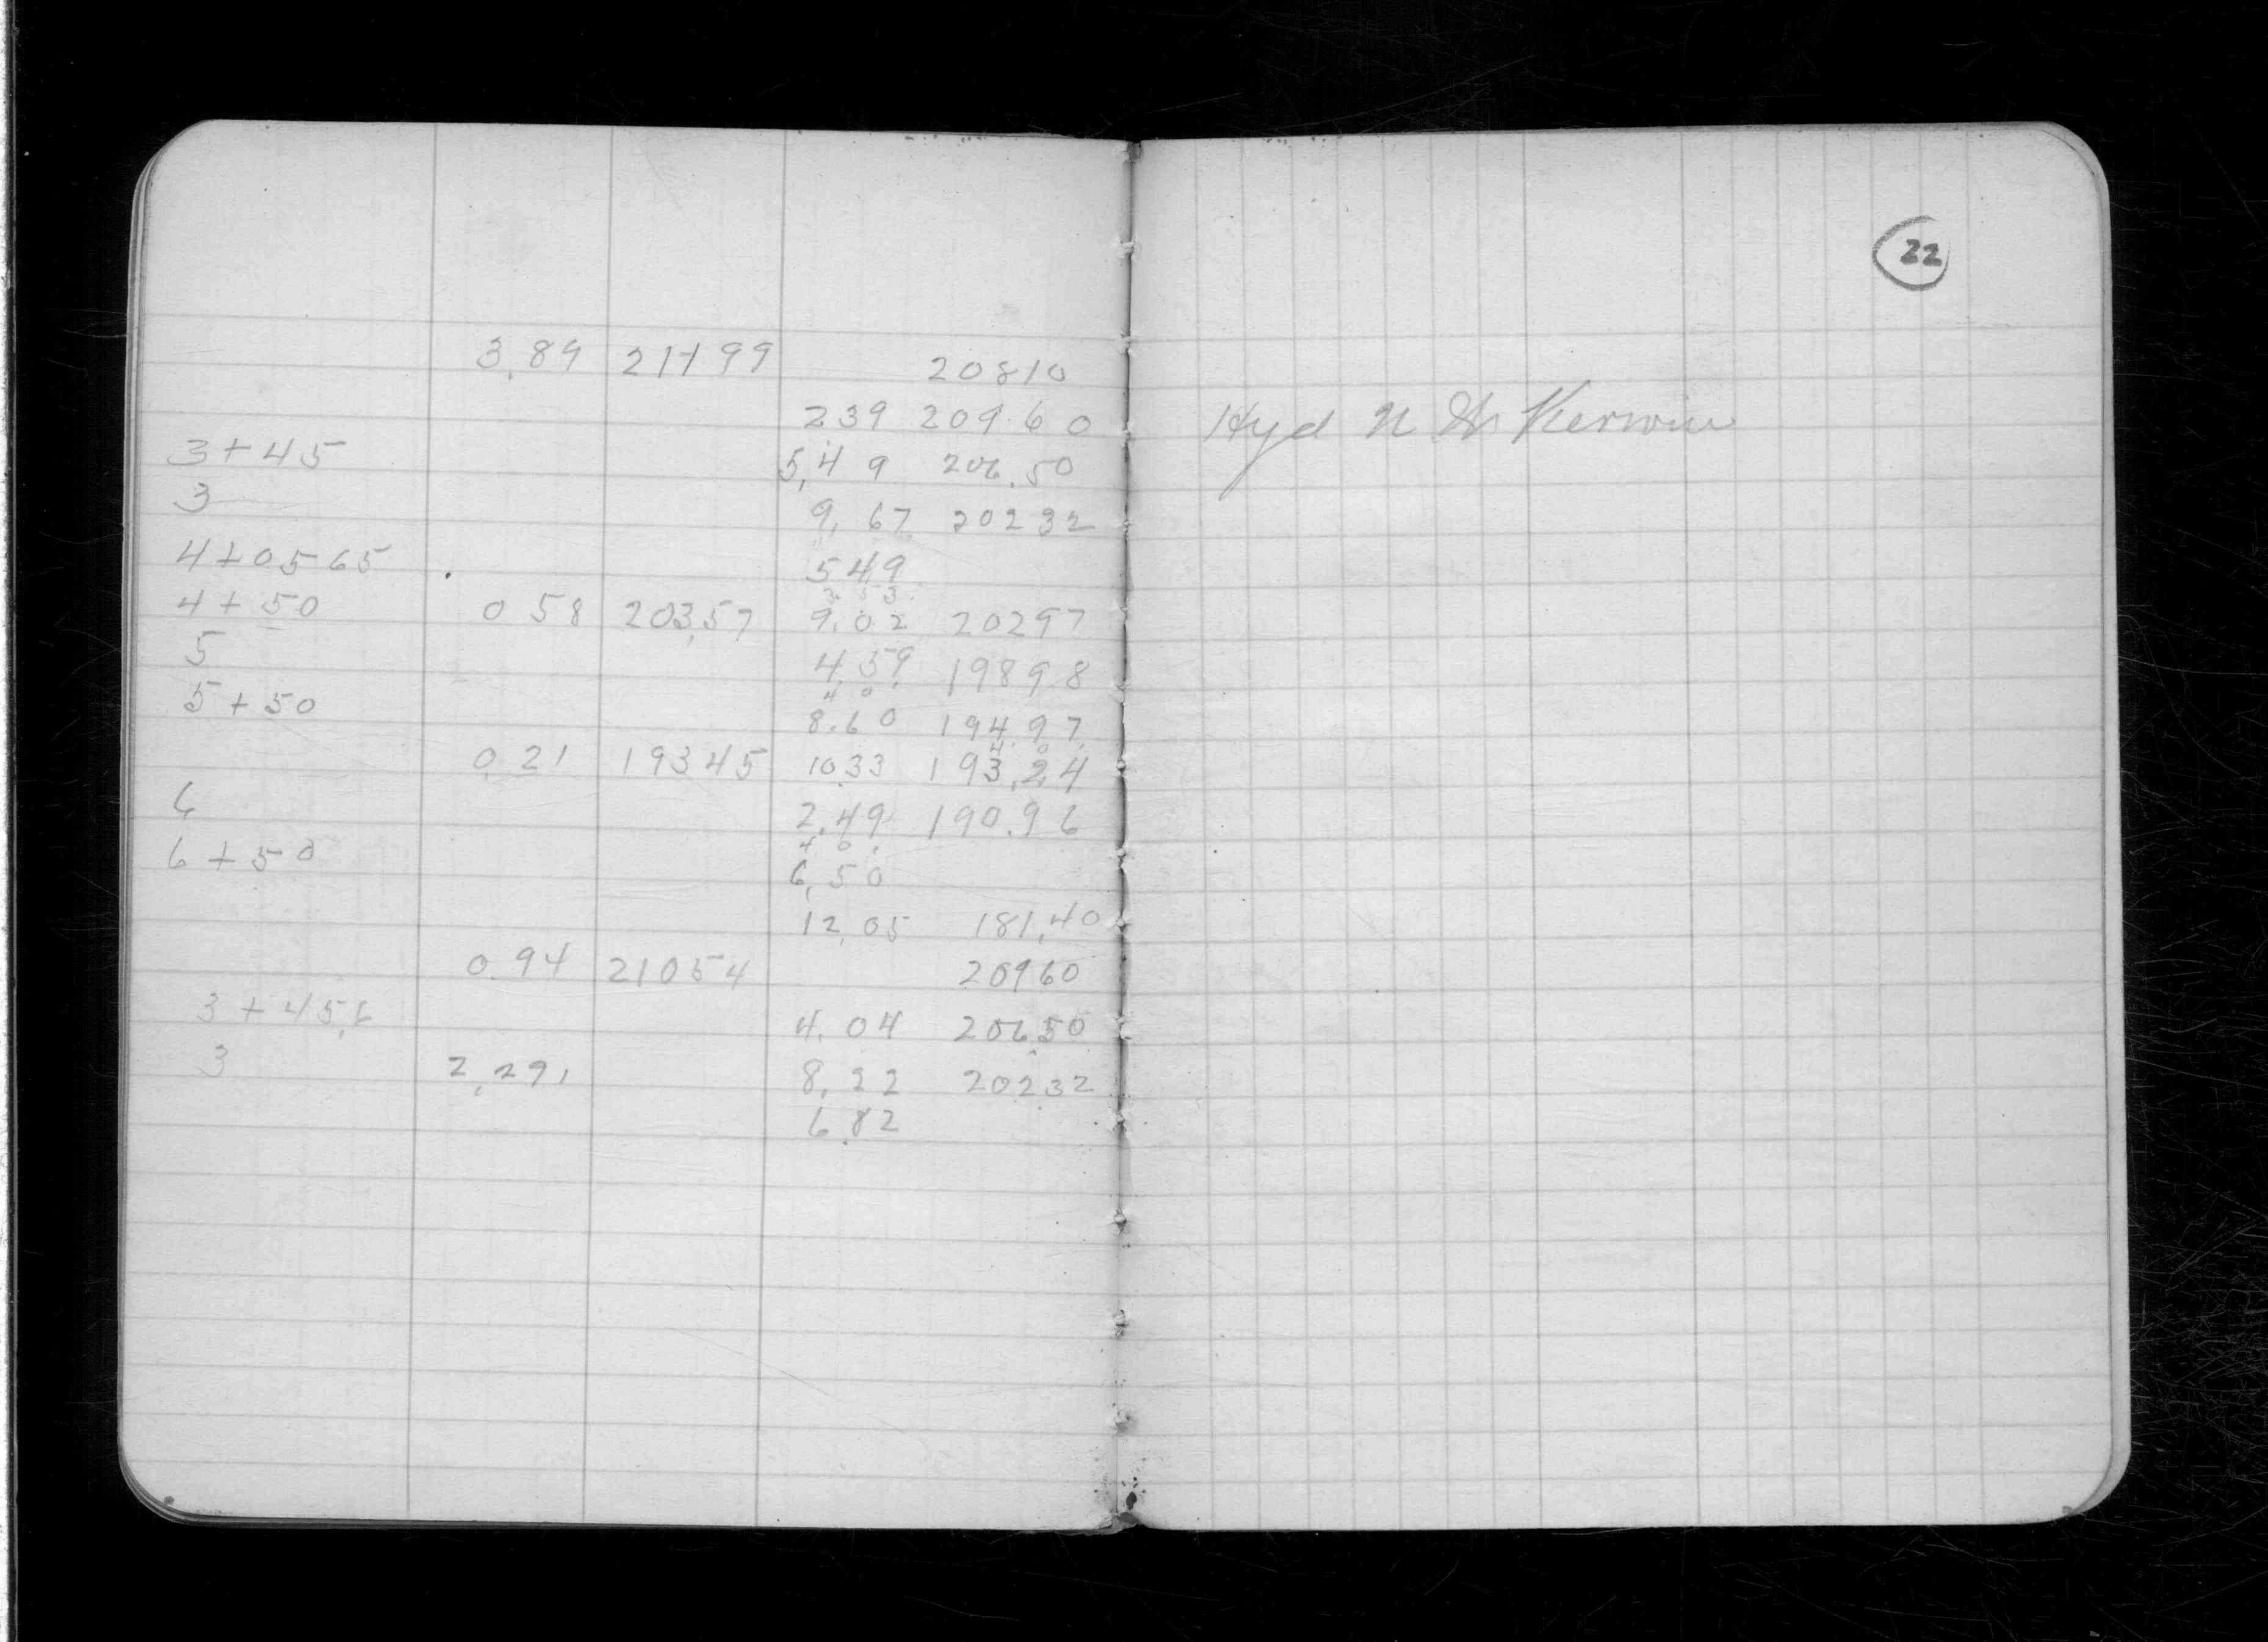 3.89 211 99 20810
239 209.60
3+45 5,49 206.50
3 9,67 20232
4+0565 549
3.53
4+50 0 58 203,57 9.02 20297
5 4.59 19898
4 0 1
5+50 8.60 194.97
4 0
0.21 19345 1033 193.24
6 2.49 190.96
4 0 1
6+50 6,50
12.05 181,40
0.94 21054 20960
3+45.6 4.04 206.50
3 2.291 8,22 20232
6.82
22
Hyd N St Kerwin